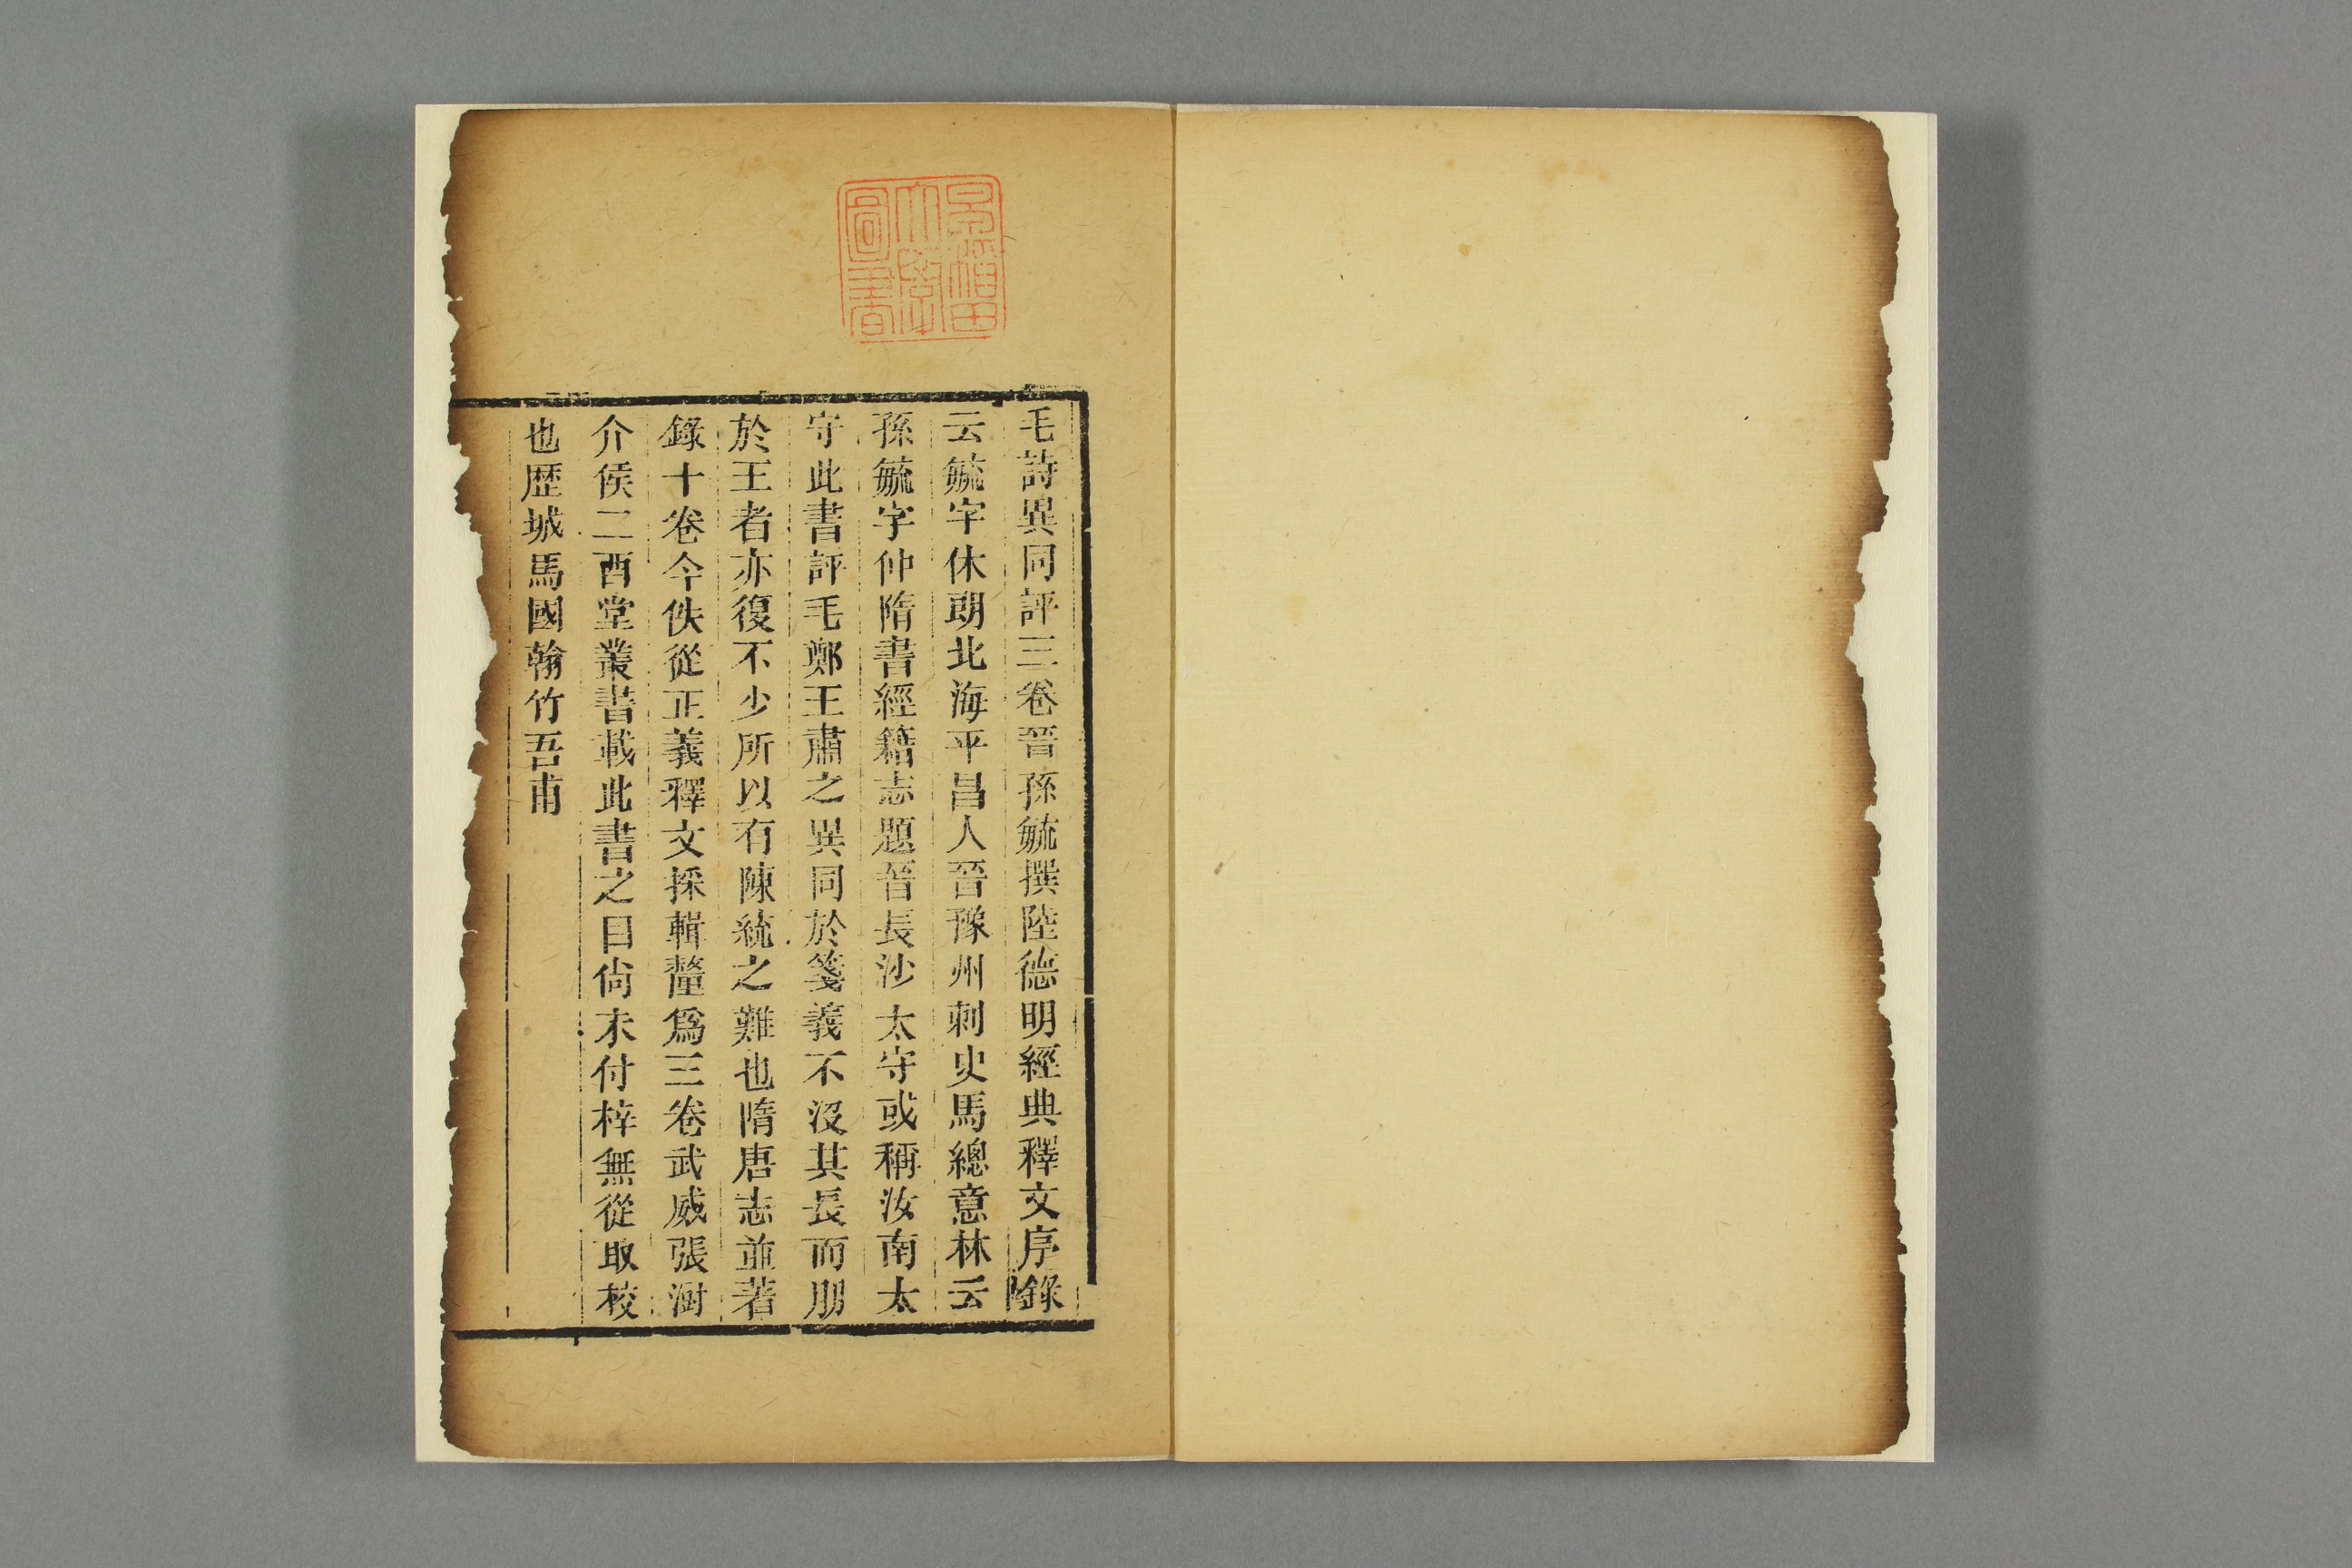 毛詩異同評三卷晉孫毓撰陸德明經典釋文序錄
云毓字休朗北海平昌人晉豫州刺史馬總意林云
孫毓字仲隋書經籍志題晉長沙太守或稱汝南太
守此書評毛鄭王肅之異同於箋義不沒其長而朋
於王者亦復不少所以有陳統之難也隋唐志並著
錄十卷今佚從正義釋文採輯釐爲三卷武威張澍
介侯二酉堂叢書載此書之目尙未付梓無從取校
也歷城馬國翰竹吾甫
早稻田
大學
圖書